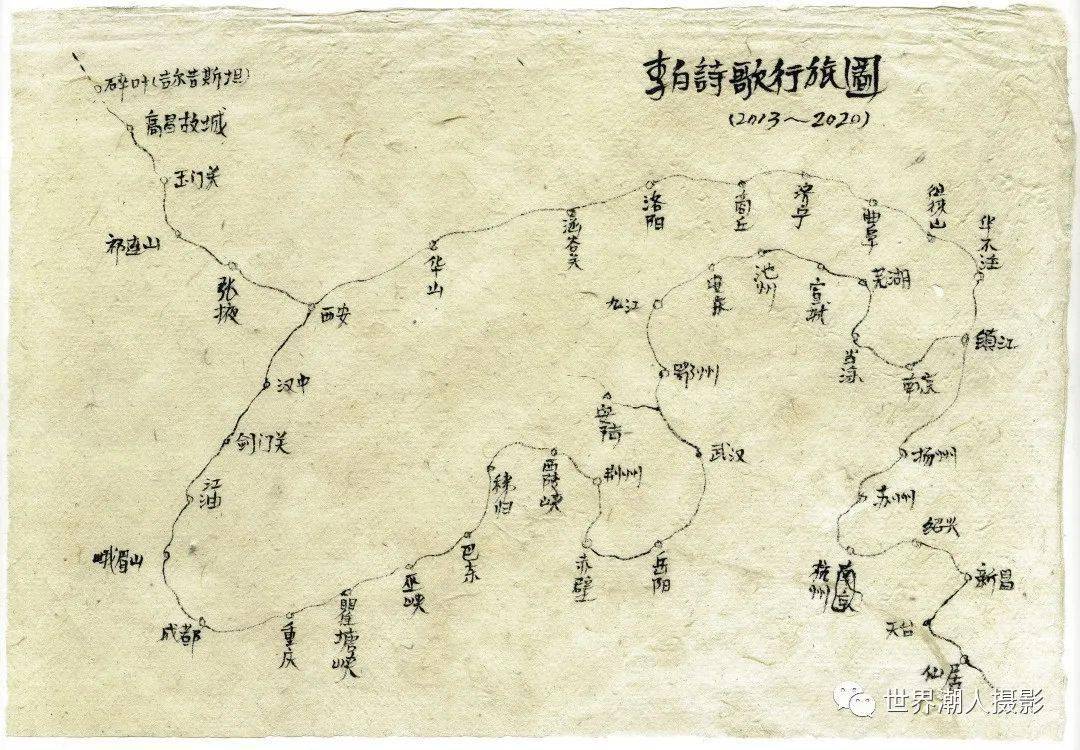 李白詩歌行旅圖
(2013~2020)
碎叶(吉尔吉斯坦)
高昌故城
玉门关
祁连山
张掖
西安
汉中
剑门关
江油
峨眉山
成都
重庆
瞿塘峡
巫峡
巴东
秭归
西陵峡
荆州
赤壁
岳阳
武汉
安陆
鄂州
九江
池州
宣城
芜湖
当涂
南京
镇江
华山
函谷关
洛阳
商丘
济宁
曲阜
徂徕山
华不注
扬州
苏州
杭州
绍兴
新昌
天台
仙居
世界潮人摄影